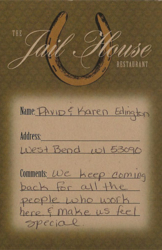 THE
Jail House
RESTAURANT
Name: David & Karen Edington
Address:
West Bend WI 53090
Comments: We keep coming
back for all the
people who work
here & make us feel
special